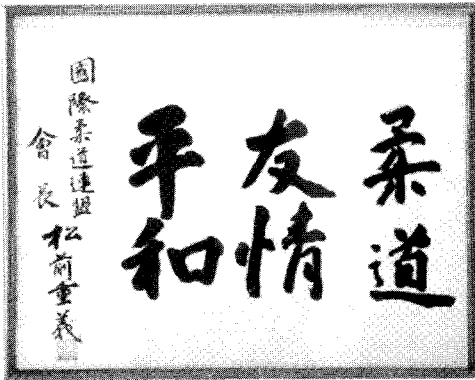 柔道
友情
平和
國際柔道連盟
會長 松前重義